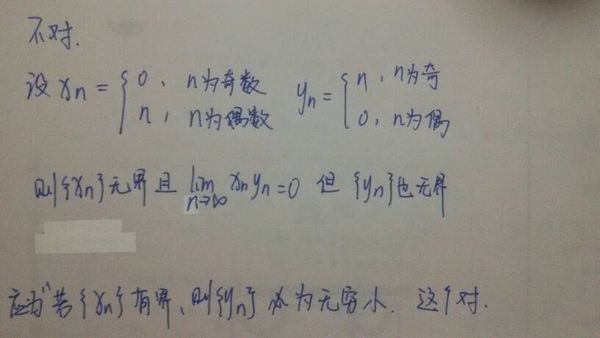 不对.
设 xn = { 0, n为奇数  yn = { n, n为奇
n, n为偶数  0, n为偶
则{xn}无界且 lim n→∞ xnyn=0 但 {yn}也无界
应为"若{xn}有界,则{yn}必为无穷小. 这个对.